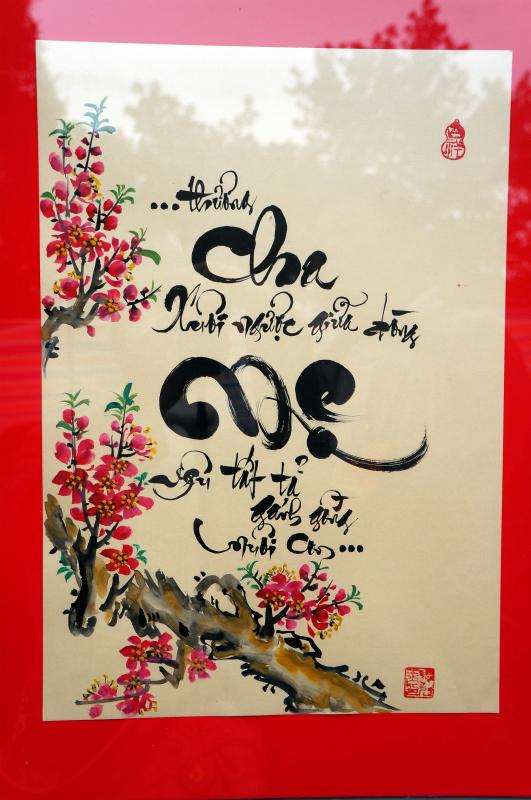 ...thương
Cha
Xuôi ngược giữa dòng
Mẹ
yêu tất tả
gánh gồng
nuôi con...